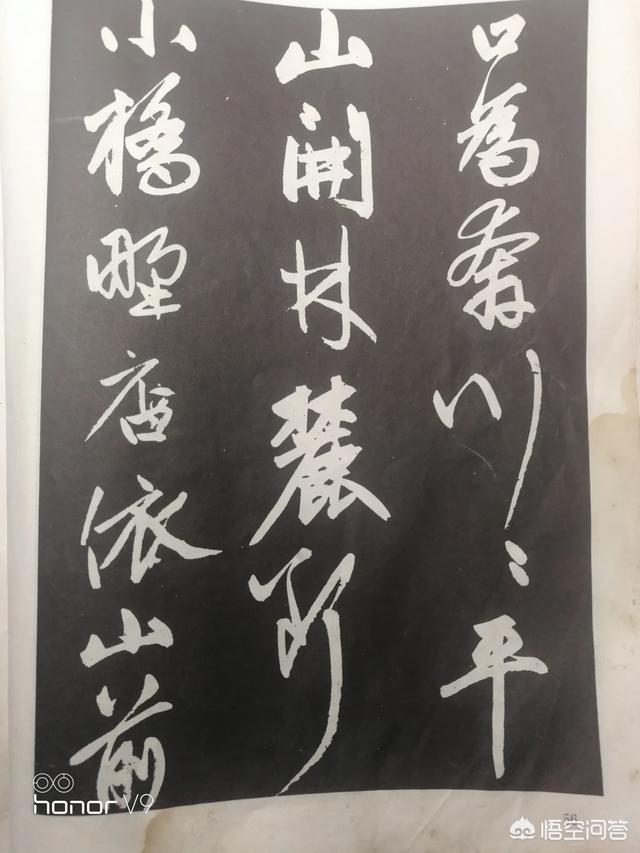 口為奔川川平
山開林麓断
小橋野店依山前
56
honor V9
悟空问答